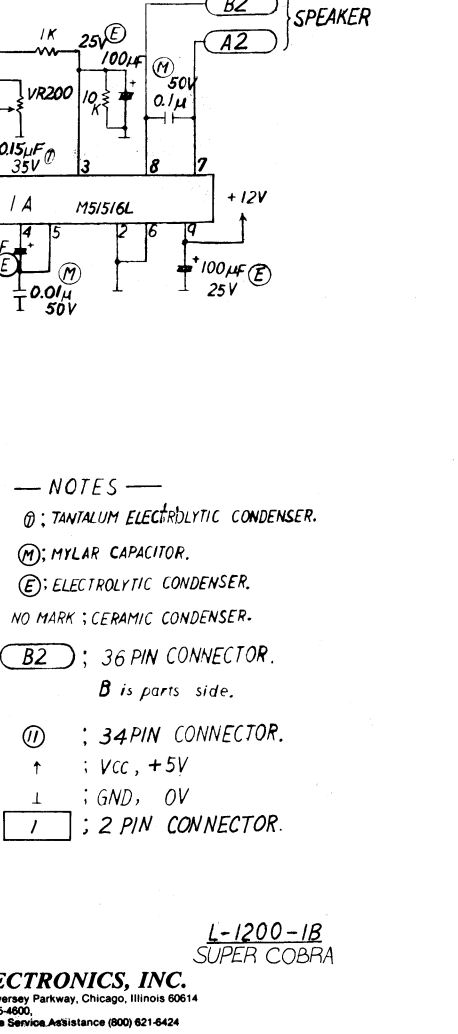 B2
SPEAKER
A2
1K
25V E
100µF
M
50V
0.1µ
VR200
10
K
0.15µF
35V T
3
8
7
1A
M51516L
+12V
4
5
2
6
9
+
E
M
+100µF E
25V
0.01µ
50V
— NOTES —
T ; TANTALUM ELECTROLYTIC CONDENSER.
M ; MYLAR CAPACITOR.
E ; ELECTROLYTIC CONDENSER.
NO MARK ; CERAMIC CONDENSER.
B2 ; 36 PIN CONNECTOR.
B is parts side.
11 ; 34 PIN CONNECTOR.
↑ ; VCC, +5V
⊥ ; GND, 0V
1 ; 2 PIN CONNECTOR.
L-1200-1B
SUPER COBRA
ECTRONICS, INC.
versey Parkway, Chicago, Illinois 60614
-4600,
e Service Assistance (800) 621-6424